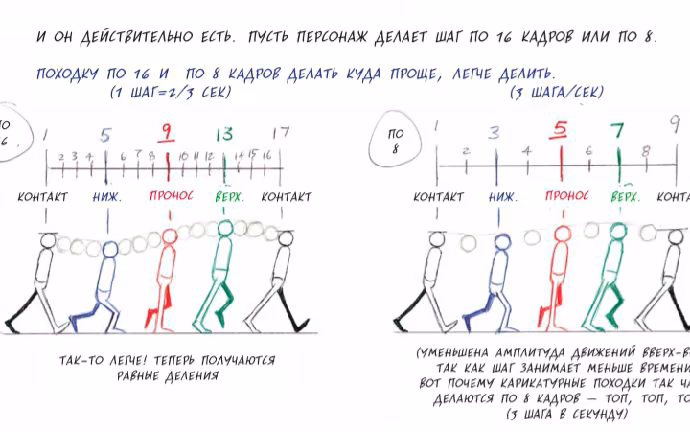 И ОН ДЕЙСТВИТЕЛЬНО ЕСТЬ. ПУСТЬ ПЕРСОНАЖ ДЕЛАЕТ ШАГ ПО 16 КАДРОВ ИЛИ ПО 8.
ПОХОДКУ ПО 16 И ПО 8 КАДРОВ ДЕЛАТЬ КУДА ПРОЩЕ, ЛЕГЧЕ ДЕЛИТЬ.
(1 ШАГ=2/3 СЕК) (3 ШАГА/СЕК)
1 5 9 13 17
2 3 4 6 7 8 10 11 12 14 15 16
КОНТАКТ НИЖ. ПРОНОС ВЕРХ. КОНТАКТ
ТАК-ТО ЛЕГЧЕ! ТЕПЕРЬ ПОЛУЧАЮТСЯ
РАВНЫЕ ДЕЛЕНИЯ
ПО
8
1 3 5 7 9
2 4 6 8
КОНТАКТ НИЖ. ПРОНОС ВЕРХ.
(УМЕНЬШЕНА АМПЛИТУДА ДВИЖЕНИЙ ВВЕРХ-В
ТАК КАК ШАГ ЗАНИМАЕТ МЕНЬШЕ ВРЕМЕНИ
ВОТ ПОЧЕМУ КАРИКАТУРНЫЕ ПОХОДКИ ТАК ЧА
ДЕЛАЮТСЯ ПО 8 КАДРОВ — ТОП, ТОП, ТО
(3 ШАГА В СЕКУНДУ)